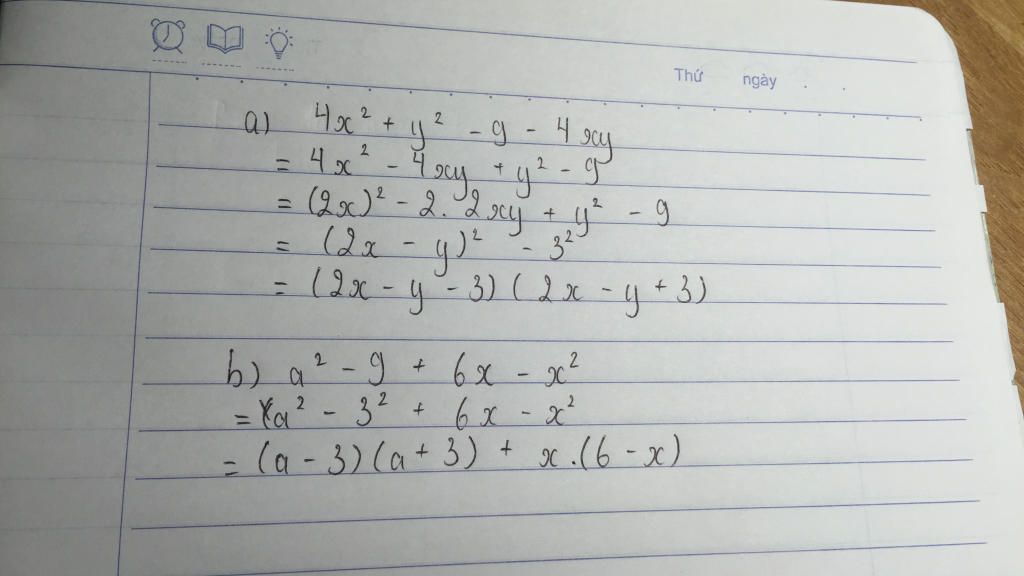 Thứ ngày . .
a) 4x² + y² - 9 - 4xy
= 4x² - 4xy + y² - 9
= (2x)² - 2. 2xy + y² - 9
= (2x - y)² - 3²
= (2x - y - 3) (2x - y + 3)
b) a² - 9 + 6x - x²
= a² - 3² + 6x - x²
= (a - 3)(a + 3) + x.(6 - x)